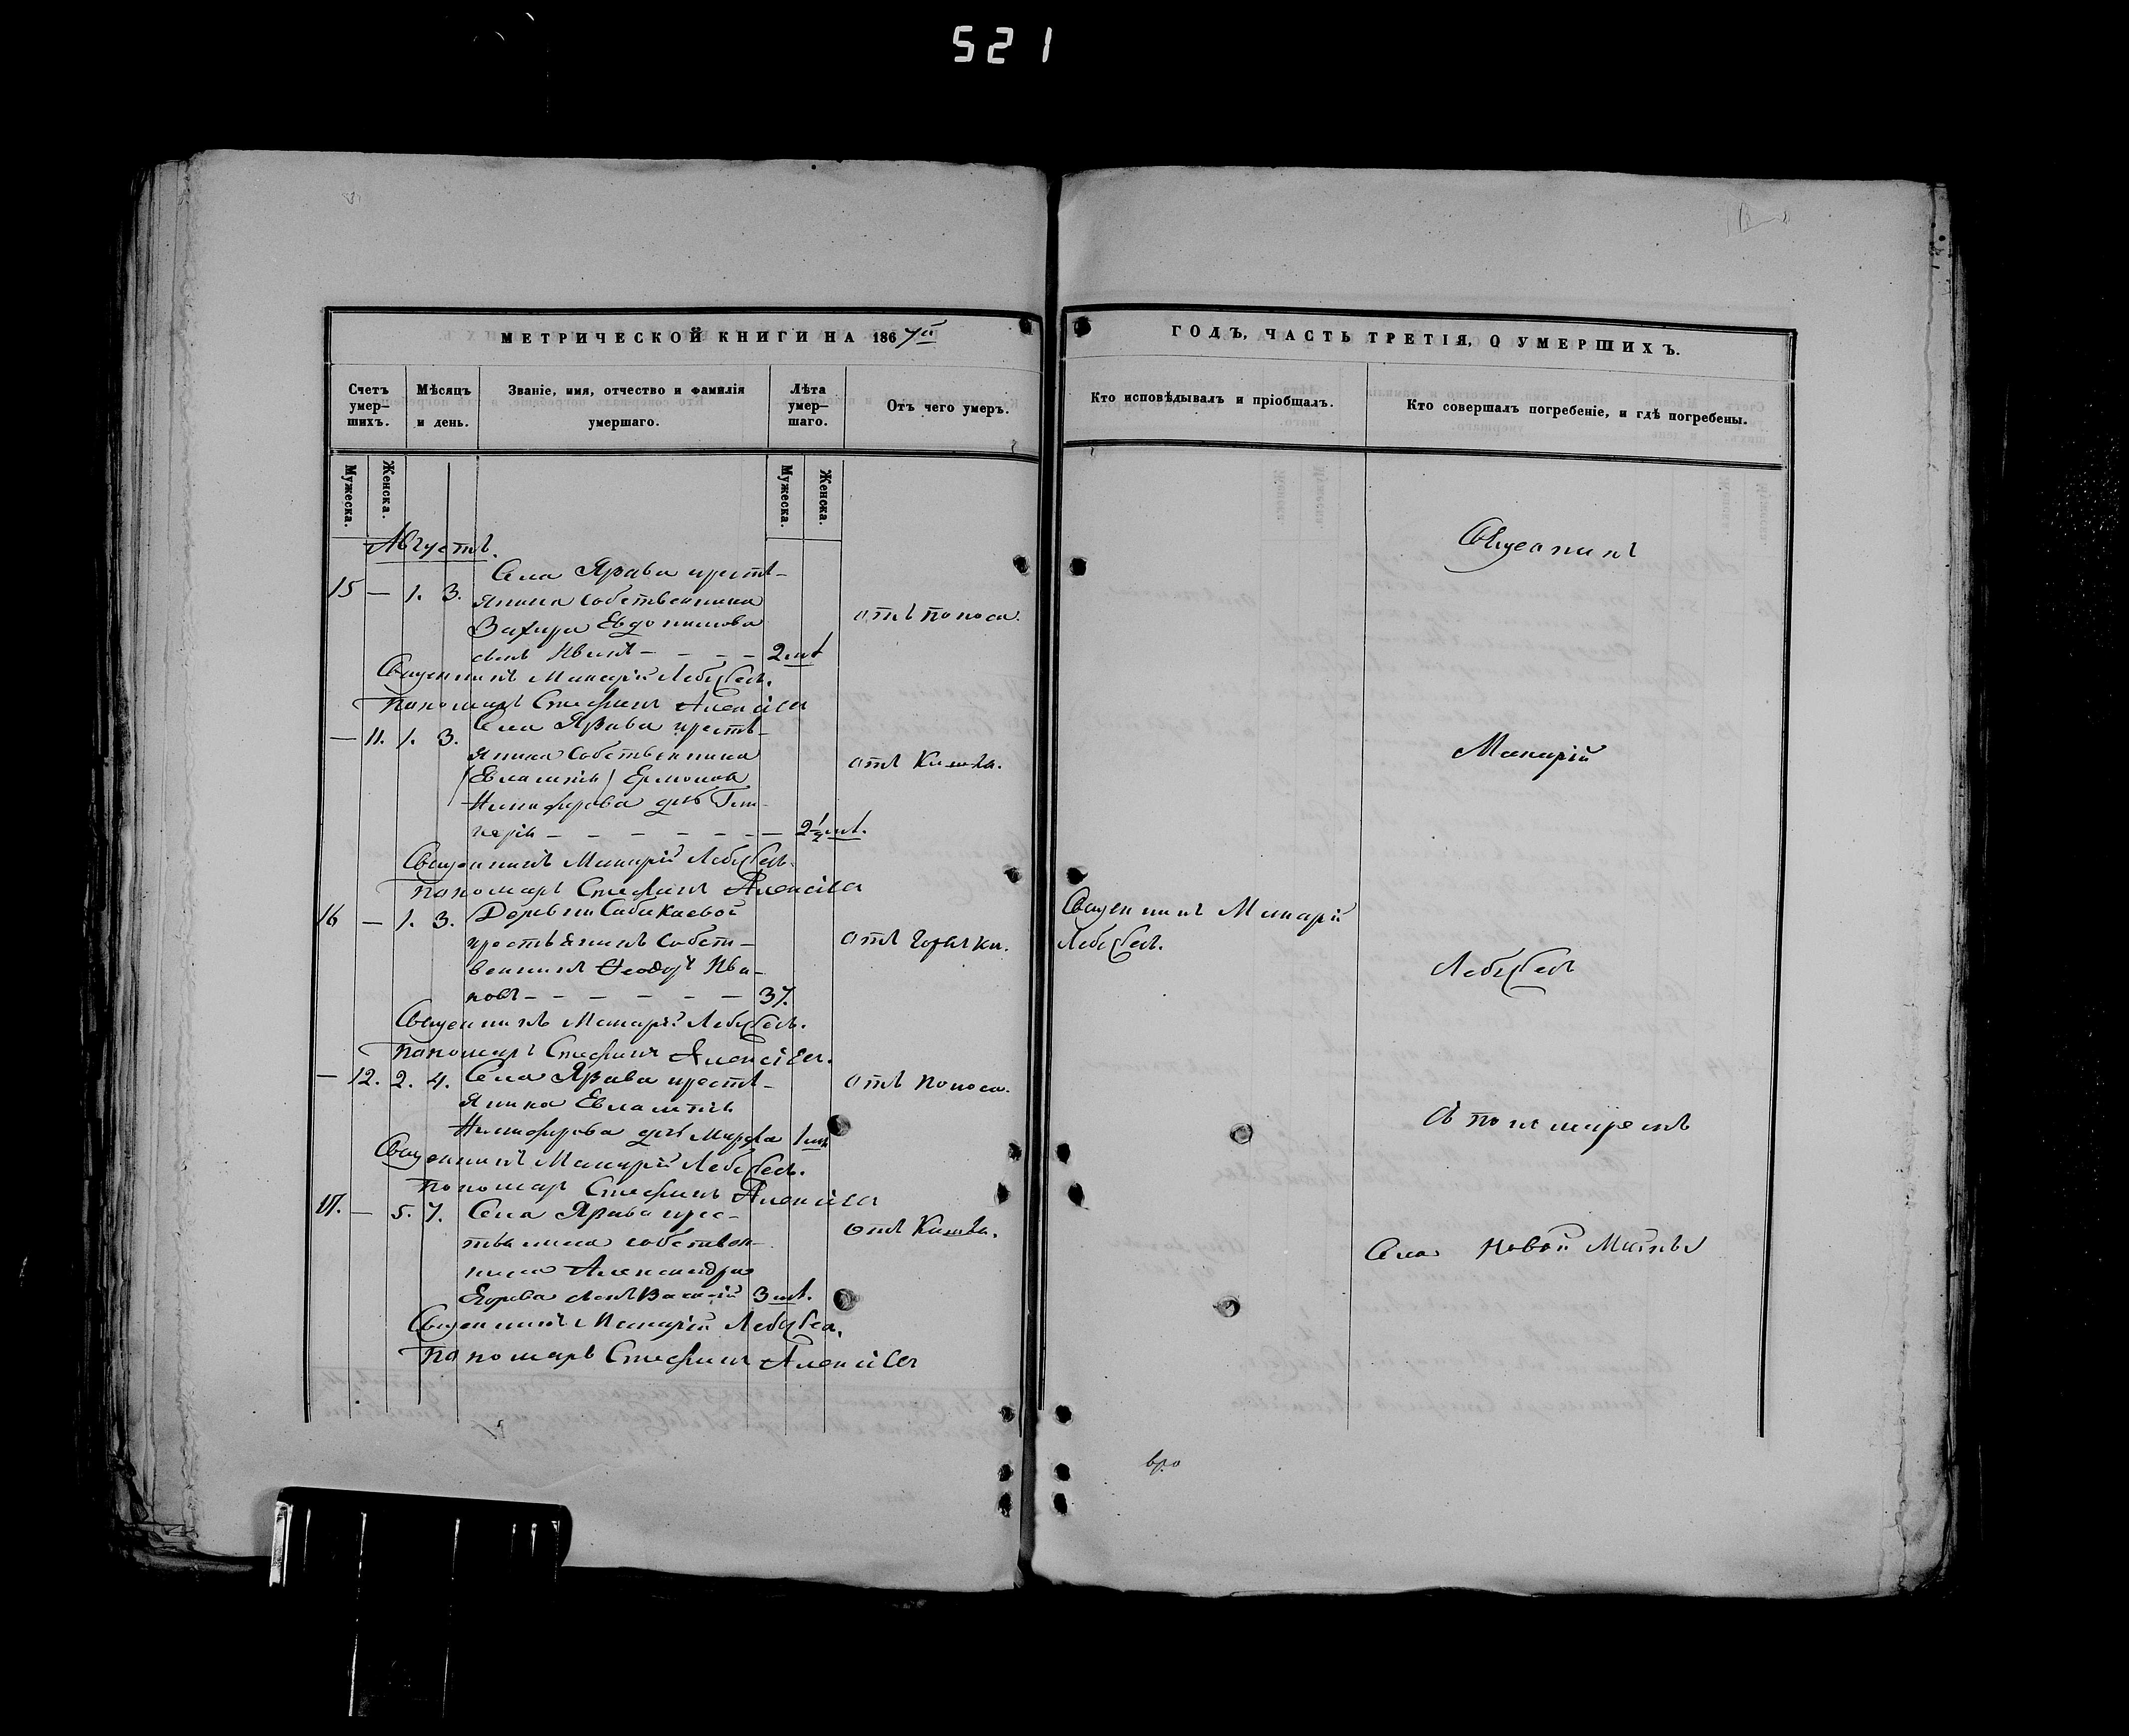 521
МЕТРИЧЕСКОЙ КНИГИ НА 1867й
Счетъ умер-
шихъ.
Мѣсяцъ
и день.
Званіе, имя, отчество и фамилія
умершаго.
Лѣта
умер-
шаго.
Отъ чего умеръ.
Мужеска.
Женска.
Мужеска.
Женска.
Августъ.
15 — 1. 3. Села Язрава кресть-
янина собственника
Евдокимова
сынъ Иванъ — — — — 2 мѣ
отъ поноса.
Священникъ Макарій Лебедевъ.
Пономарь Стефанъ Алексѣевъ
— 11. 1. 3. Села кресть-
янина собственника
(Евлампія) Ермолая
Никифорова дочь Гли-
керія — — — — — — — 2½ мѣ.
отъ Кашля.
Священникъ Макарій Лебедевъ.
Пономарь Стефанъ Алексѣевъ
16 — 1. 3. Деревни Сабакаевой
крестьянинъ собст-
венникъ Ѳеодоръ Ива-
новъ — — — — — — 37.
отъ горячки.
Священникъ Макарій Лебедевъ.
Пономарь Стефанъ Алексѣевъ.
— 12. 2. 4. Села кресть-
янина Евлампія
Никифорова дочь Марфа 1 мѣ
отъ поноса.
Священникъ Макарій Лебедевъ.
Пономарь Стефанъ Алексѣевъ
17. — 5. 7. Села крес-
тьянина собствен-
ника Александра
Егорова сынъ Василій 3 мѣ.
отъ Кашля.
Священникъ Макарій Лебедевъ.
Пономарь Стефанъ Алексѣевъ
ГОДЪ, ЧАСТЬ ТРЕТІЯ, О УМЕРШИХЪ.
Кто исповѣдывалъ и пріобщалъ.
Кто совершалъ погребеніе, и гдѣ погребены.
Священникъ
Макарій
Священникъ Макарій
Лебедевъ.
Лебедевъ
съ пономаремъ
Села Новой Майны